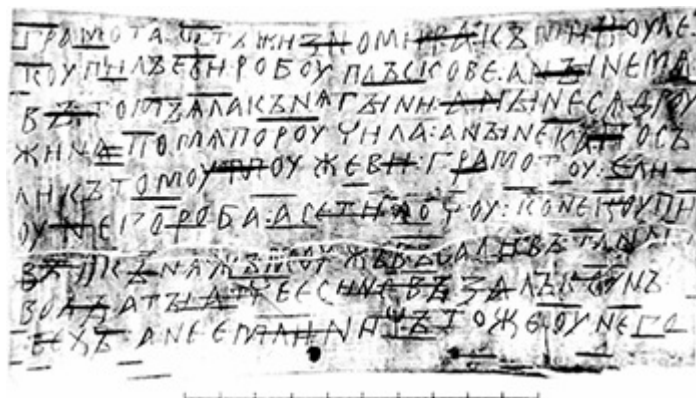 ГРАМОТА : ѠТЪ ЖИЗНОМИРА : КЪ МИКОУЛЕ :
КОУПИЛЪ ЕСИ : РОБОУ : ПЛЪСКОВЕ : А НЫНЕ МѦ :
ВЪ ТОМЪ : ѦЛА КЪНѦГЫНИ : А НЫНЕ СѦ ДРОУ
ЖИНА : ПО МѦ ПОРОУЧИЛА : А НЫНЕ КА : ПОСЪ
ЛИ КЪ ТОМОУ : МОУЖЕВИ : ГРАМОТОУ : ЕЛИ
ОУ НЕГО РОБА : А СЕ ТИ ХОЧОУ : КОНЕ КОУПИ
ВЪ : И КЪНѦЖЪ МОУЖЪ ВЪСАДИВЪ : ТА НА СЪ
ВОДЫ : А ТЫ АТЧЕ ЕСИ НЕ ВЪЗАЛЪ КОУНЪ :
ТЕХЪ : А НЕ ЕМЛИ : НИЧЪТО ЖЕ : ОУ НЕГО :